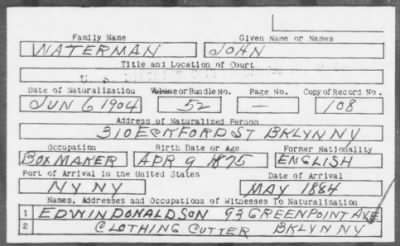 Family Name Given Name or Names
WATERMAN JOHN
Title and Location of Court
U.S.
Date of Naturalization Volume or Bundle No. Page No. Copy of Record No.
JUN 6 1904 52 — 108
Address of Naturalized Person
310 ECKFORD ST BKLYN NY
Occupation Birth Date or Age Former Nationality
BOXMAKER APR 9 1875 ENGLISH
Port of Arrival in the United States Date of Arrival
NY NY MAY 1884
Names, Addresses and Occupations of Witnesses To Naturalization
1 EDWIN DONALDSON 93 GREENPOINT AVE
2 CLOTHING CUTTER BKLYN NY